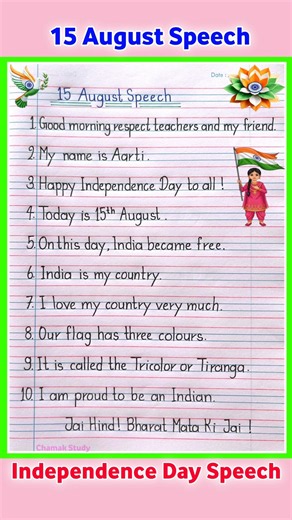 15 August Speech
Date :
15 August Speech
1. Good morning respect teachers and my friend.
2. My name is Aarti.
3. Happy Independence Day to all !
4. Today is 15th August.
5. On this day, India became free.
6. India is my country.
7. I love my country very much.
8. Our flag has three colours.
9. It is called the Tricolor or Tiranga.
10. I am proud to be an Indian.
Jai Hind! Bharat Mata Ki Jai !
Chamak Study
Independence Day Speech